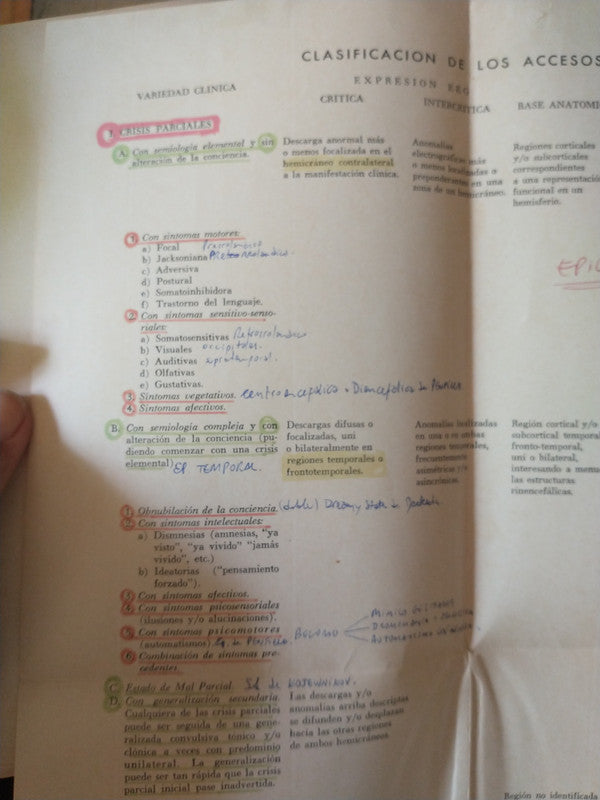 CLASIFICACION DE LOS ACCESOS
EXPRESION
VARIEDAD CLINICA
CRITICA
INTERCRITICA
BASE ANATOMI
I CRISIS PARCIALES
A. Con semiología elemental y sin
alteración de la conciencia.
Descarga anormal más
o menos focalizada en el
hemicráneo contralateral
a la manifestación clínica.
Anomalías
electrográficas más
o menos localizadas o
preponderantes en una
zona de un hemicráneo.
Regiones corticales
y/o subcorticales
correspondientes
a una representación
funcional en un
hemisferio.
1. Con síntomas motores:
a) Focal
b) Jacksoniana
c) Adversiva
d) Postural
e) Somatoinhibidora
f) Trastorno del lenguaje.
2. Con síntomas sensitivo-senso-
riales:
a) Somatosensitivas
b) Visuales
c) Auditivas
d) Olfativas
e) Gustativas.
3. Síntomas vegetativos.
4. Síntomas afectivos.
B. Con semiología compleja y con
alteración de la conciencia (pu-
diendo comenzar con una crisis
elemental) EP TEMPORAL.
Descargas difusas o
focalizadas, uni
o bilateralmente en
regiones temporales o
frontotemporales.
Anomalías localizadas
en una o en ambas
regiones temporales,
frecuentemente
asimétricas y/o
asincrónicas.
Región cortical y/o
subcortical temporal
frontotemporal,
uni o bilateral,
interesando a menu
las estructuras
rinencefálicas.
1. Obnubilación de la conciencia.
2. Con síntomas intelectuales:
a) Dismnesias (amnesias, "ya
visto", "ya vivido" "jamás
vivido", etc.)
b) Ideatorias ("pensamiento
forzado").
3. Con síntomas afectivos.
4. Con síntomas psicosensoriales
(ilusiones y/o alucinaciones).
5. Con síntomas psicomotores
(automatismos)
6. Combinación de síntomas pre-
cedentes.
C. Estado de Mal Parcial.
D. Con generalización secundaria.
Cualquiera de las crisis parciales
puede ser seguida de una gene-
ralizada convulsiva tónico y/o
clónica a veces con predominio
unilateral. La generalización
puede ser tan rápida que la crisis
parcial inicial pase inadvertida.
Las descargas y/o
anomalías arriba descriptas
se difunden y/o desplazan
hacia las otras regiones
de ambos hemicráneos
Región no identificada